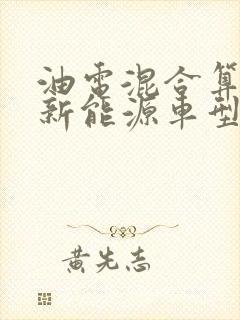 油電混合算
新能源車型
黃先志